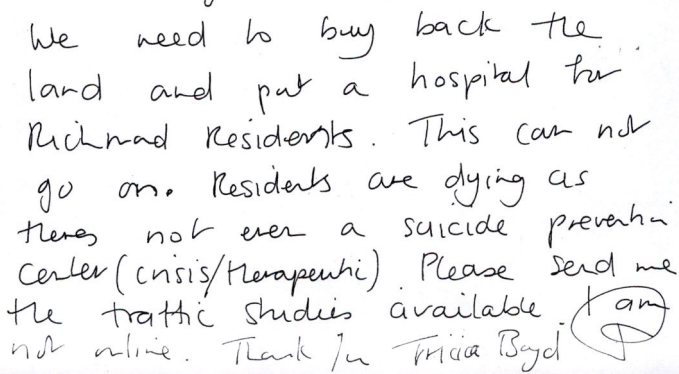 We need to buy back the
land and put a hospital for
Richmad Residents. This can not
go on. Residents are dying as
theres not even a suicide preventin
center (crisis/therapeutic) Please send me
the traffic studies available. I am
not online. Thank Tricia Boyd